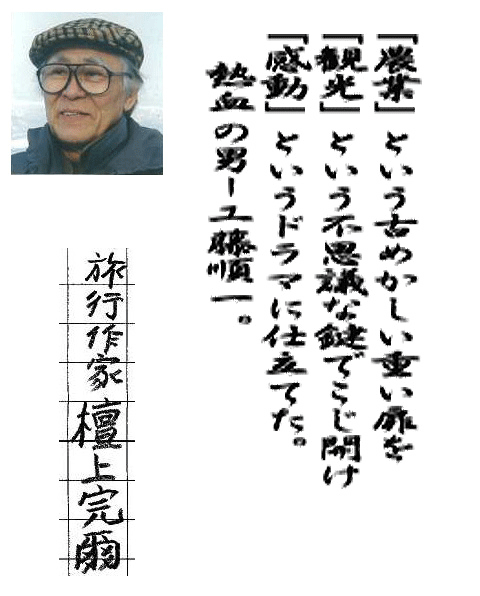 「農業」という古めかしい重い扉を
「観光」という不思議な鍵でこじ開け
「感動」というドラマに仕立てた。
熱血の男ー工藤順一。
旅行作家 檀上完爾